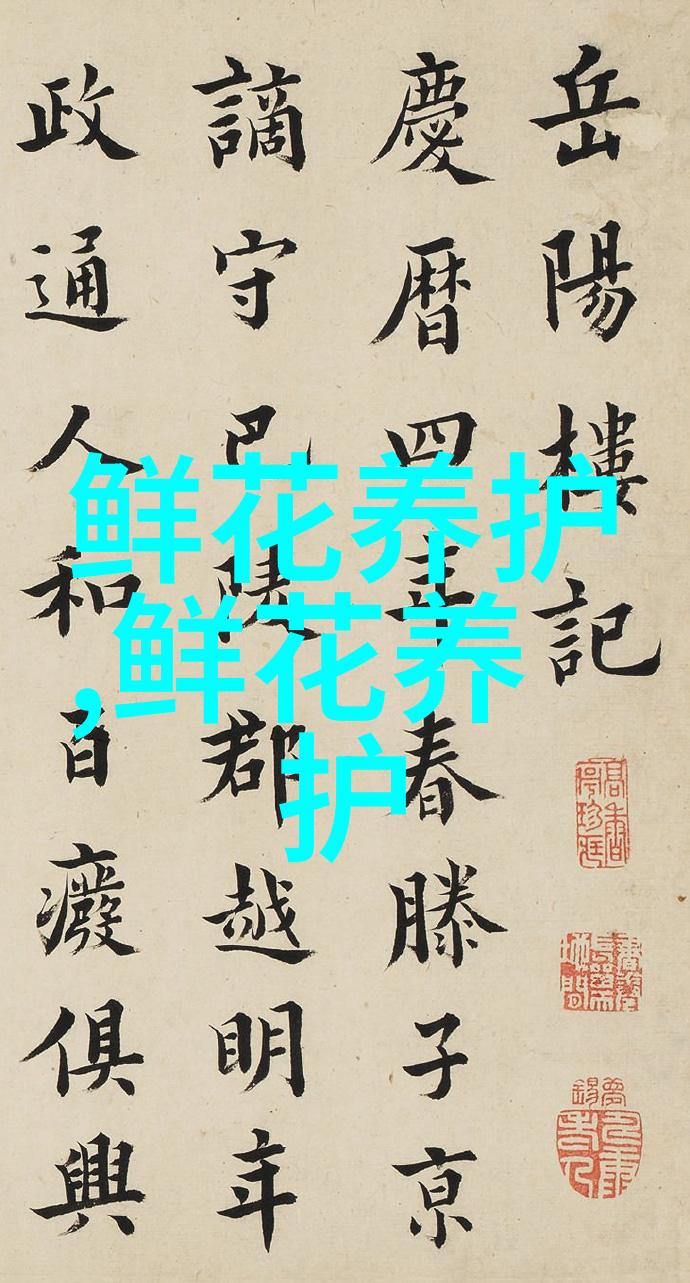 岳陽樓記
慶曆四年春滕子京
謫守巴陵郡越明年
政通人和百癈俱興
鲜花养护
,鲜花养
护